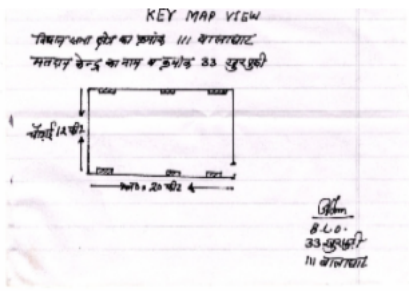 KEY MAP VIEW
विधान सभा क्षेत्र का क्रमांक 111 बालाघाट
मतदान केन्द्र का नाम व क्रमांक 33 खुरमुडी
चौड़ाई 12 फीट
20 फीट
B.L.O.
33 खुरमुडी
111 बालाघाट